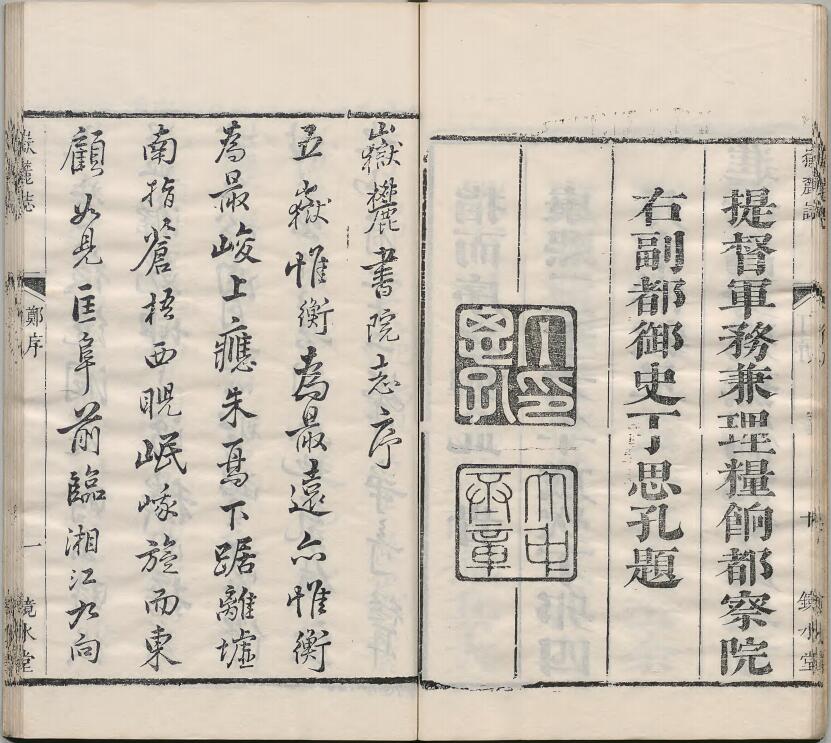 嶽麓誌
鏡水堂
提督軍務兼理糧餉都察院
右副都御史丁思孔題
丁思孔印
大中丞章
嶽麓書院志序
五嶽惟衡為最遠亦惟衡
為最峻上應朱鳥下踞離墟
南指蒼梧西睨岷峨旋而東
顧如見匡阜前臨湘江九向
嶽麓志
鄭序
一
鏡水堂